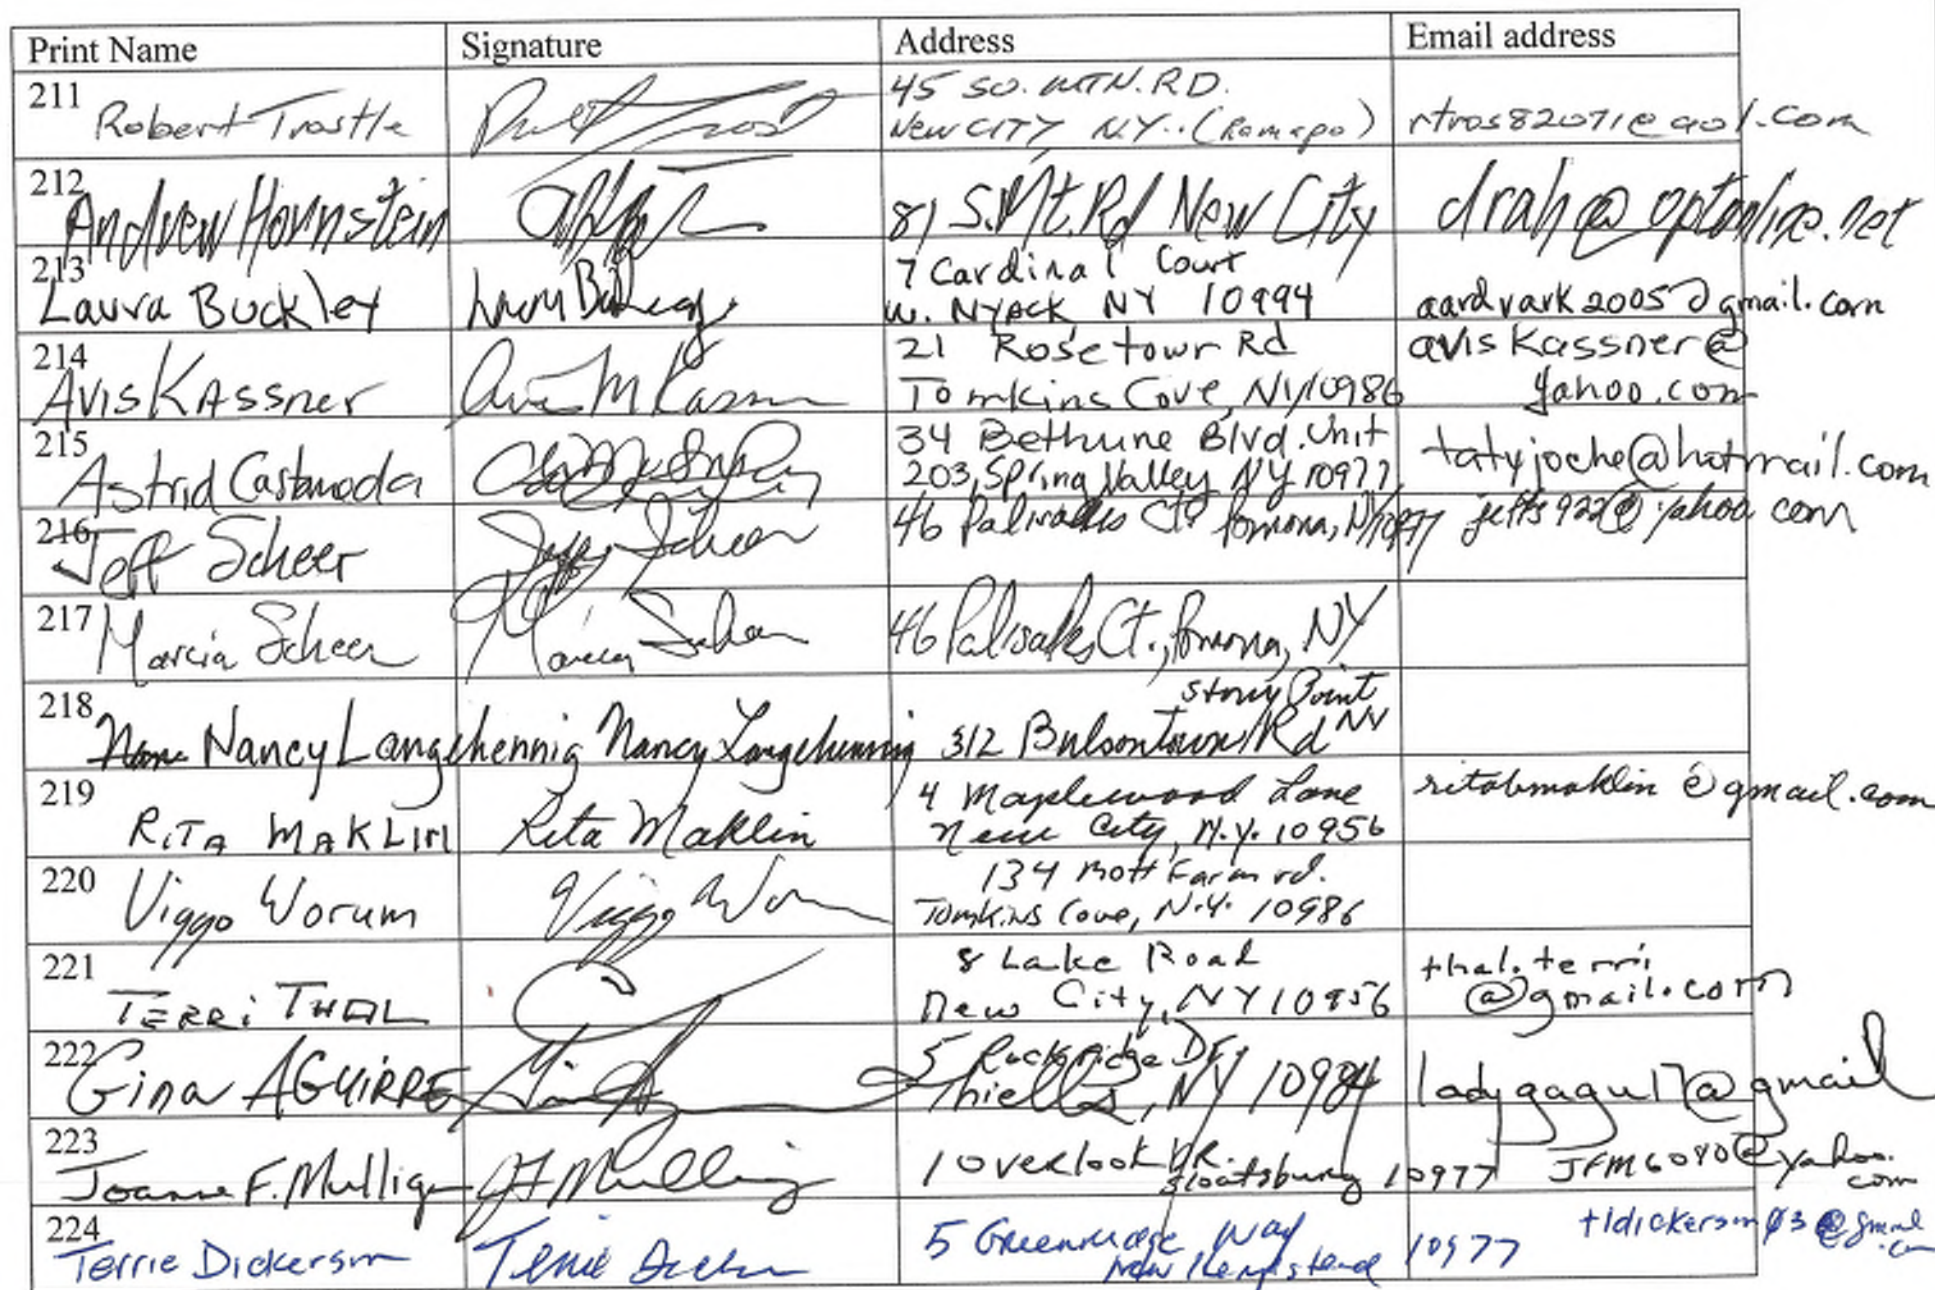 Print Name Signature Address Email address
211 Robert Trostle 45 SO. MTN. RD.
NEW CITY N.Y.. (Ramapo) rtros82071@aol.com
212 Andrew Hornstein 81 S. Mt. Rd New City drah@optonline.net
213 Laura Buckley 7 Cardinal Court
W. NYACK NY 10994 aardvark2005@gmail.com
214 Avis Kassner 21 Rosetown Rd avis Kassner@
Tomkins Cove, NY 10986 yahoo.com
215 Astrid Castaneda 34 Bethune Blvd. Unit
203, Spring Valley NY 10977 tatyjoche@hotmail.com
216 Jeff Scheer Jeff Scheer 46 Palisades Ct. Pomona, NY jeffs922@yahoo com
217 Marcia Scheer Marcia Scheer 46 Palisades Ct., Pomona, NY
218 Nancy Langehennig Nancy Langehennig 312 Bulsontown Rd Stony Point NY
219 RITA MAKLIN Rita Maklin 4 Maplewood Lane ritabmaklin@gmail.com
New City, N.Y. 10956
220 Viggo Worum Viggo 134 Mott Farm rd.
Tomkins Cove, N.Y. 10986
221 TERRi THAL 8 Lake Road thal.terri
New City, NY 10956 @gmail.com
222 Gina AGUIRRE 5 Rockridge Dr
Thiells, NY 10984 ladygagu17@gmail
223 Joanne F. Mulligan 1 Overlook DR.
Sloatsburg 10977 JFM6040@yahoo.
com
224 Terrie Dickerson 5 Greenridge Way
New Hempstead 10977 tldickerson03@gmail
.com